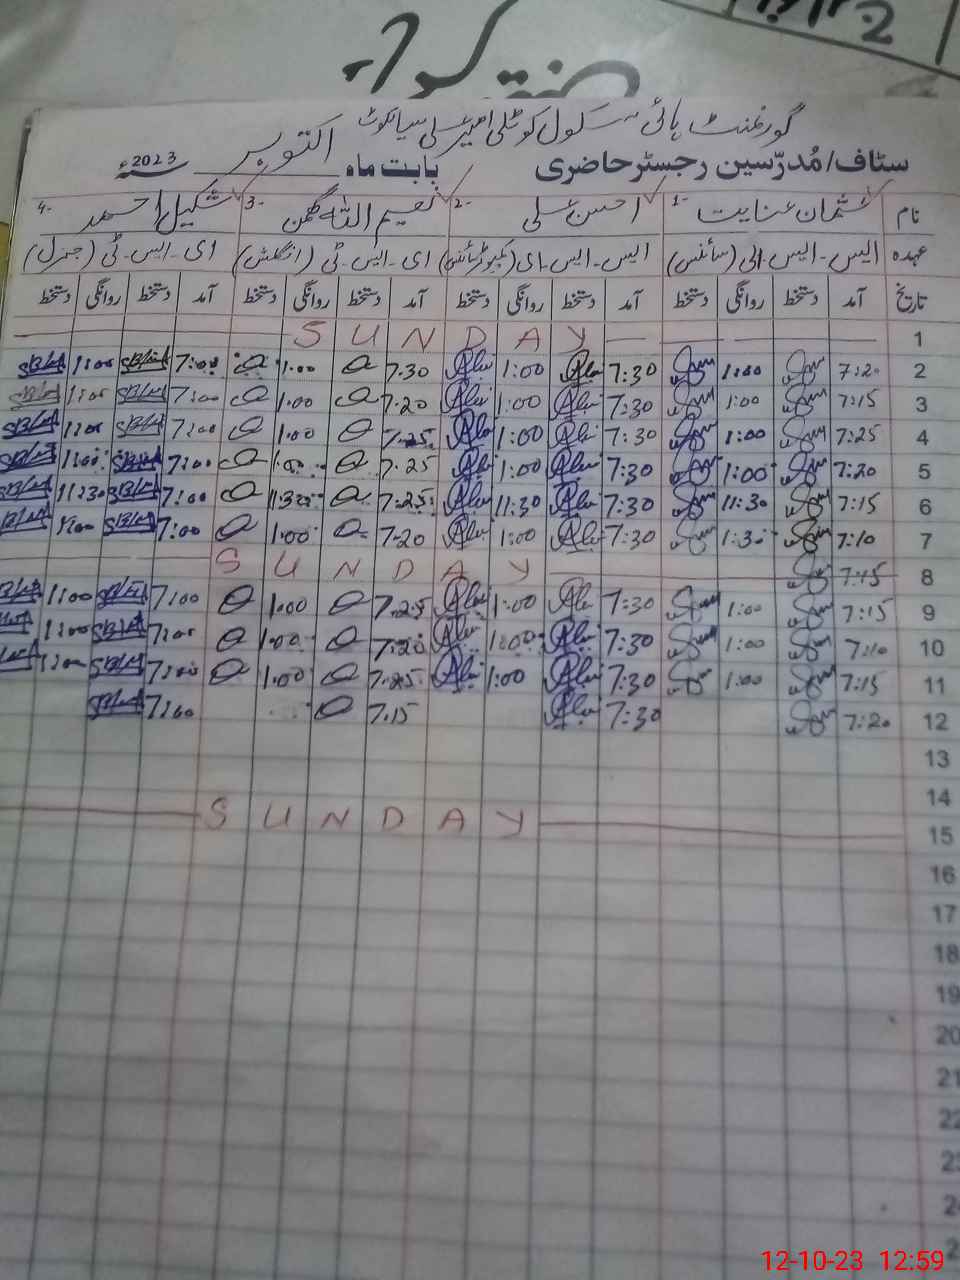 گورنمنٹ ہائی سکول کوٹلی امیر علی سیالکوٹ
سٹاف/مُدرّسین رجسٹر حاضری بابت ماہ اکتوبر 2023ء
نام 1- عثمان عنایت 2- احسن علی 3- نعیم اللہ گھمن 4- شکیل احمد
عہدہ ایس۔ایس۔ای (سائنس) ایس۔ایس۔ای (کمپیوٹر سائنس) ای۔ایس۔ٹی (انگلش) ای۔ایس۔ٹی (جنرل)
تاریخ آمد دستخط روانگی دستخط آمد دستخط روانگی دستخط آمد دستخط روانگی دستخط آمد دستخط روانگی دستخط
1 SUNDAY
2 7:20 1:00 7:30 1:00 7.30 1.00 7:00 1:00
3 7:15 1:00 7:30 1:00 7.20 1.00 7:00 1:00
4 7:25 1:00 7:30 1:00 7.25 1.00 7:00 1:00
5 7:20 1:00 7:30 1:00 7.25 1.00 7:00 1:00
6 7:15 11:30 7:30 11:30 7.25 11.30 7:00 11:30
7 7:10 1:30 7:30 1:00 7.20 1.00 7:00 1:00
8 7:15 SUNDAY
9 7:15 1:00 7:30 1:00 7.25 1.00 7:00 1:00
10 7:10 1:00 7:30 1:00 7.20 1.00 7:00 1:00
11 7:15 1:00 7:30 1:00 7.25 1.00 7:00 1:00
12 7:20 7:30 7.15 7:00
13
14
15 SUNDAY
16
17
18
19
20
21
22
23
12-10-23 12:59